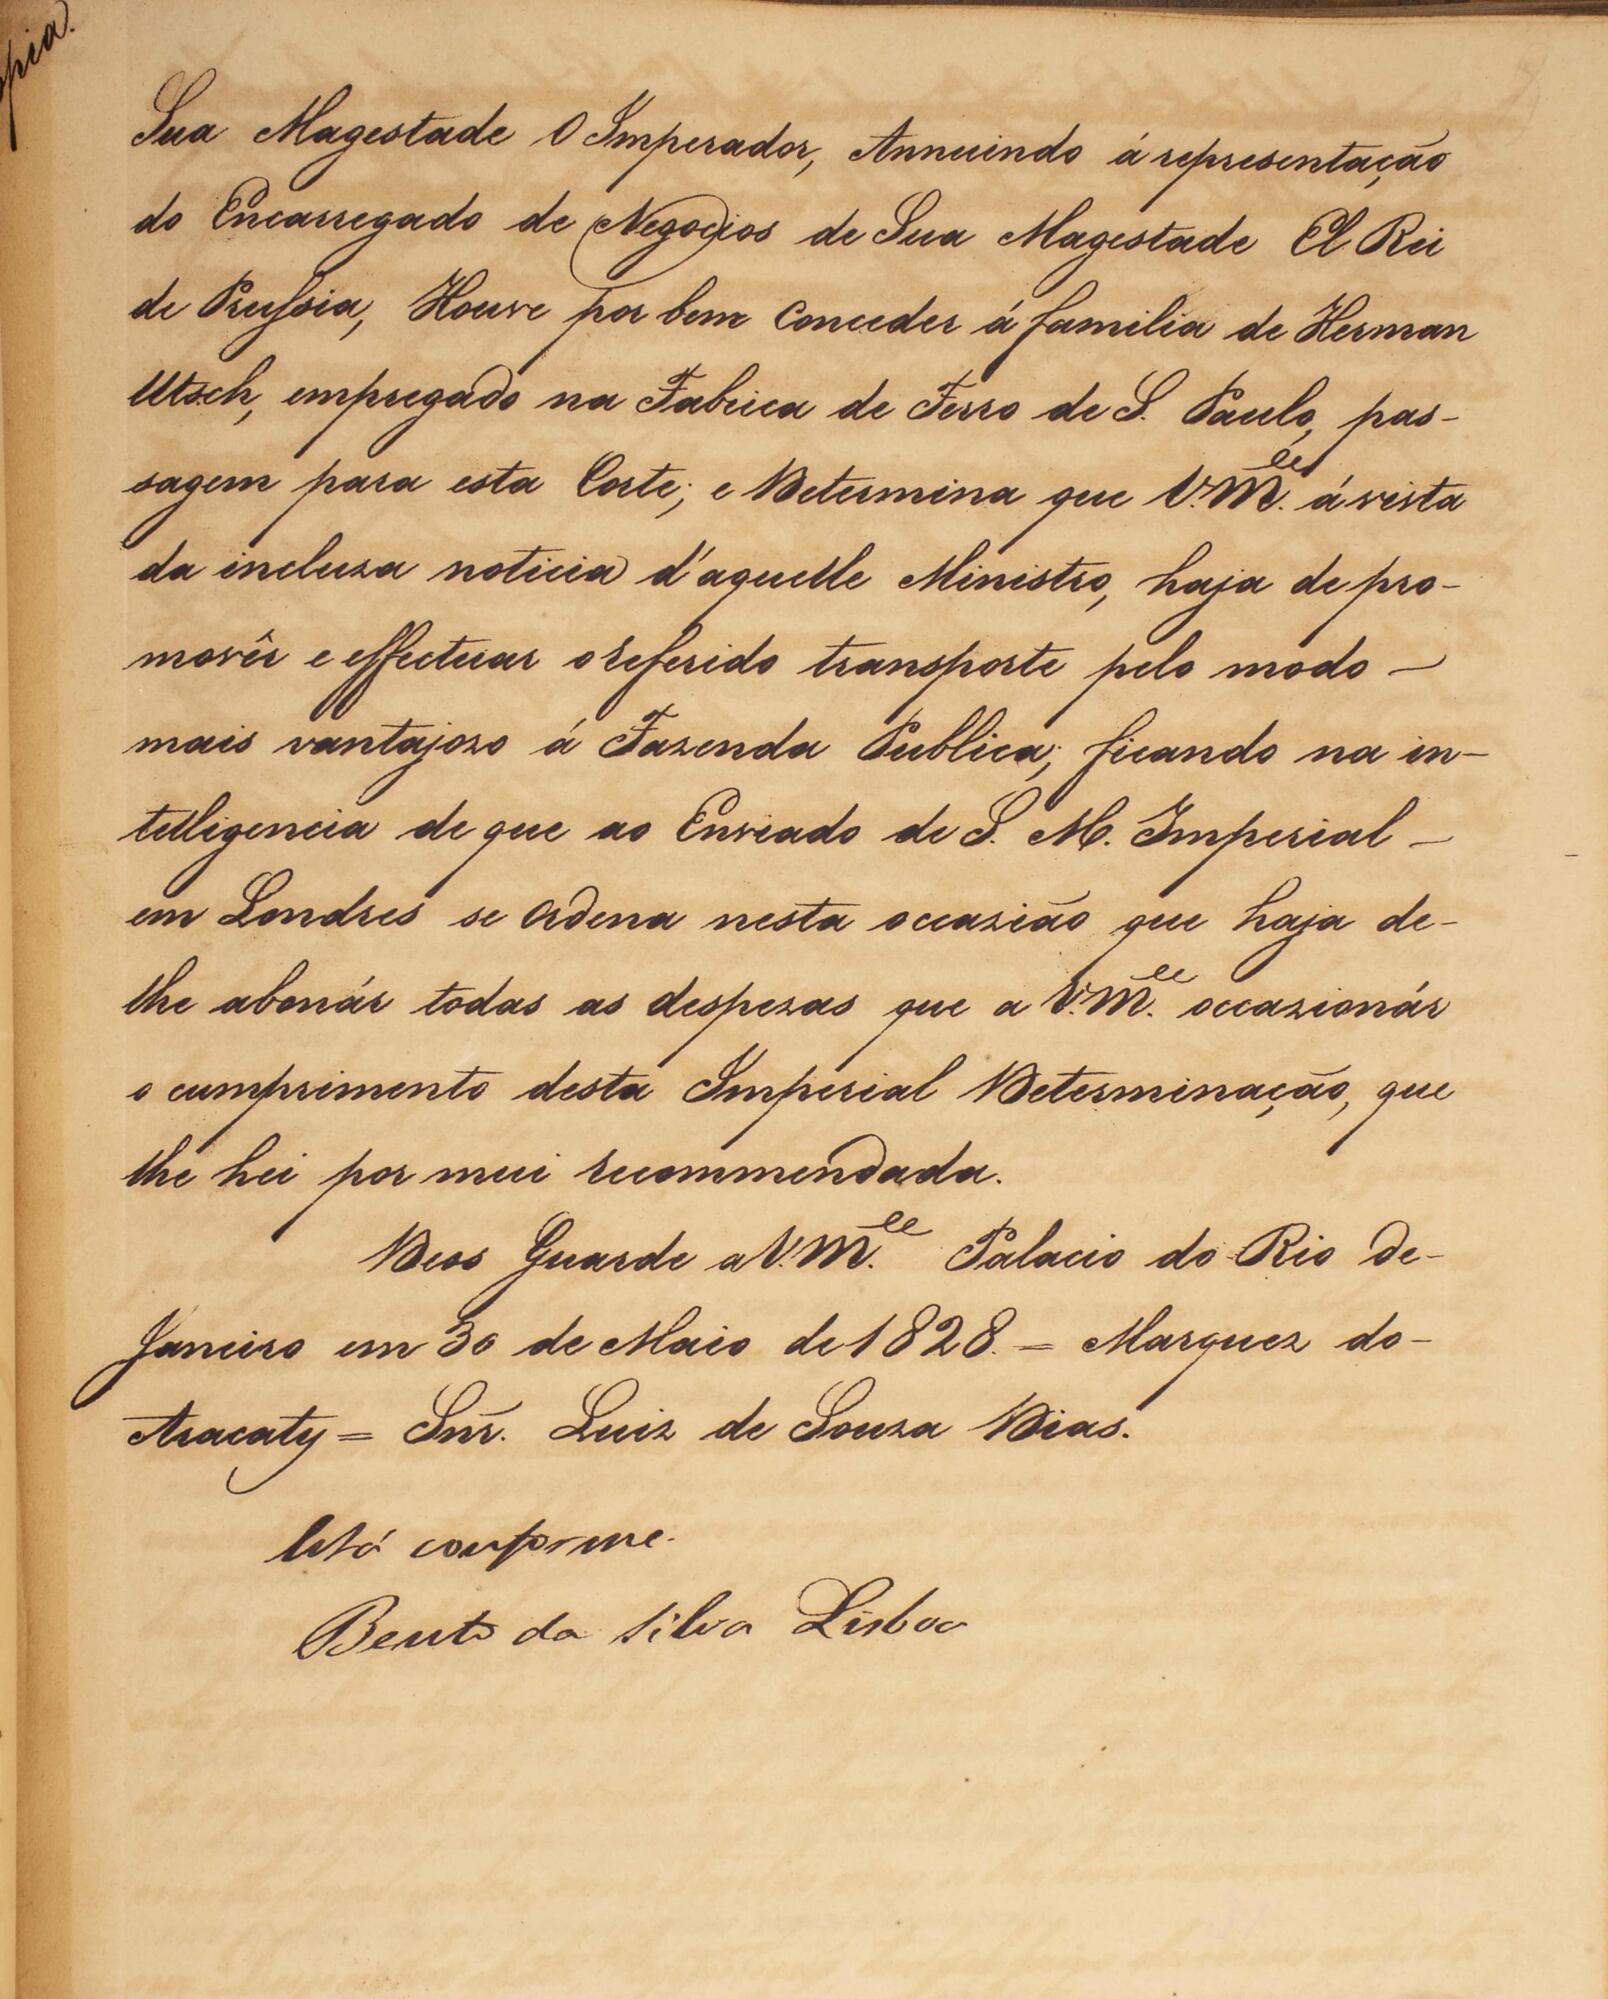 Copia.
Sua Magestade O Imperador, Annuindo á representação
do Encarregado de Negocios de Sua Magestade El Rei
de Prussia, Houve por bem Conceder á familia de Herman
Utsch, empregado na Fabrica de Ferro de S. Paulo, pas-
sagem para esta Corte; e Determina que V. M.ce á vista
da incluza noticia d'aquelle Ministro, haja de pro-
movêr e effectuar o referido transporte pelo modo -
mais vantajozo á Fazenda Publica; ficando na in-
telligencia de que ao Enviado de S. M. Imperial -
em Londres se Ordena nesta occazião que haja de-
lhe abonár todas as despezas que a V. M.ce occazionár
o cumprimento desta Imperial Determinação, que
lhe hei por mui recommendada.
Deos Guarde a V. M.ce Palacio do Rio de-
Janeiro em 30 de Maio de 1828. = Marquez do-
Aracaty = Snr. Luiz de Souza Dias.
Está conforme.
Bento da Silva Lisboa